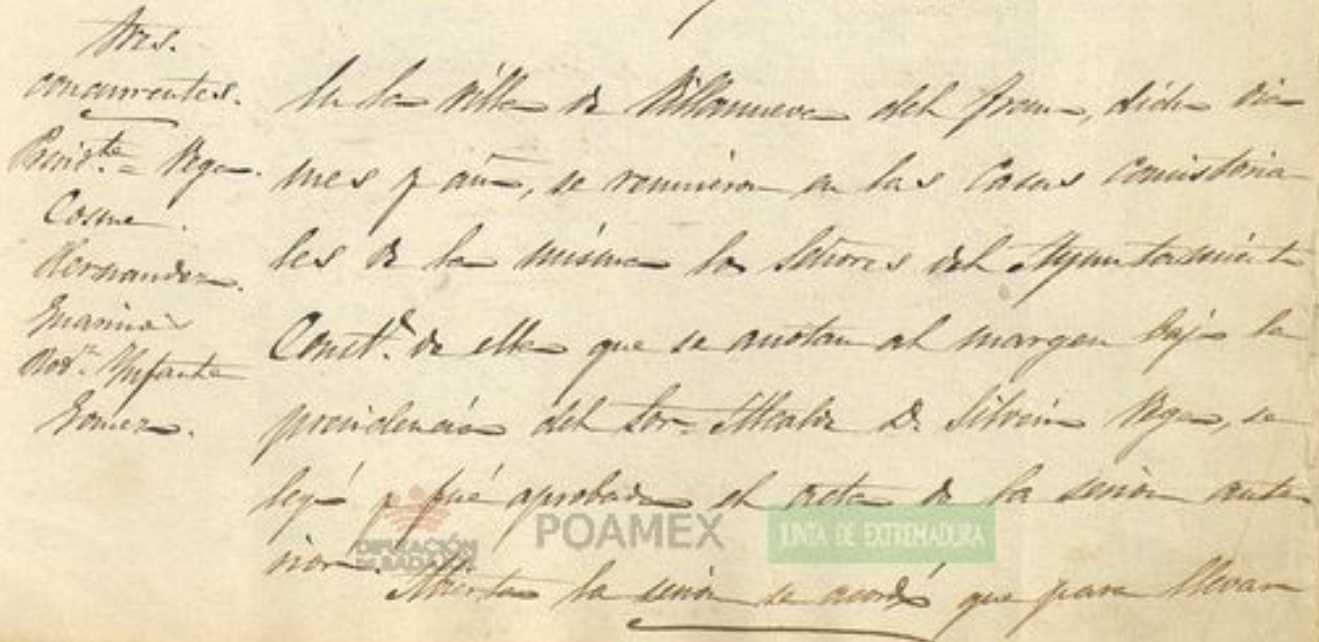 Sres.
concurrentes.
Presid.te = Vega.
Cosme.
Hernandez.
Guarino
Rod.z Ynfante
Gomez.
En la villa de Villanueva del Fresno, dicho dia
mes y año, se reunieron en las Casas Consistoria
les de la misma los Señores del Ayuntamiento
Const.l de ella que se anotan al margen bajo la
presidencia del Sor. Alcalde D. Silverio Vega, se
leyó y fué aprobada el acta de la sesion ante
rior. Abierta la sesion se acordó que para llevar
DIPUTACIÓN
DE BADAJOZ
POAMEX
JUNTA DE EXTREMADURA